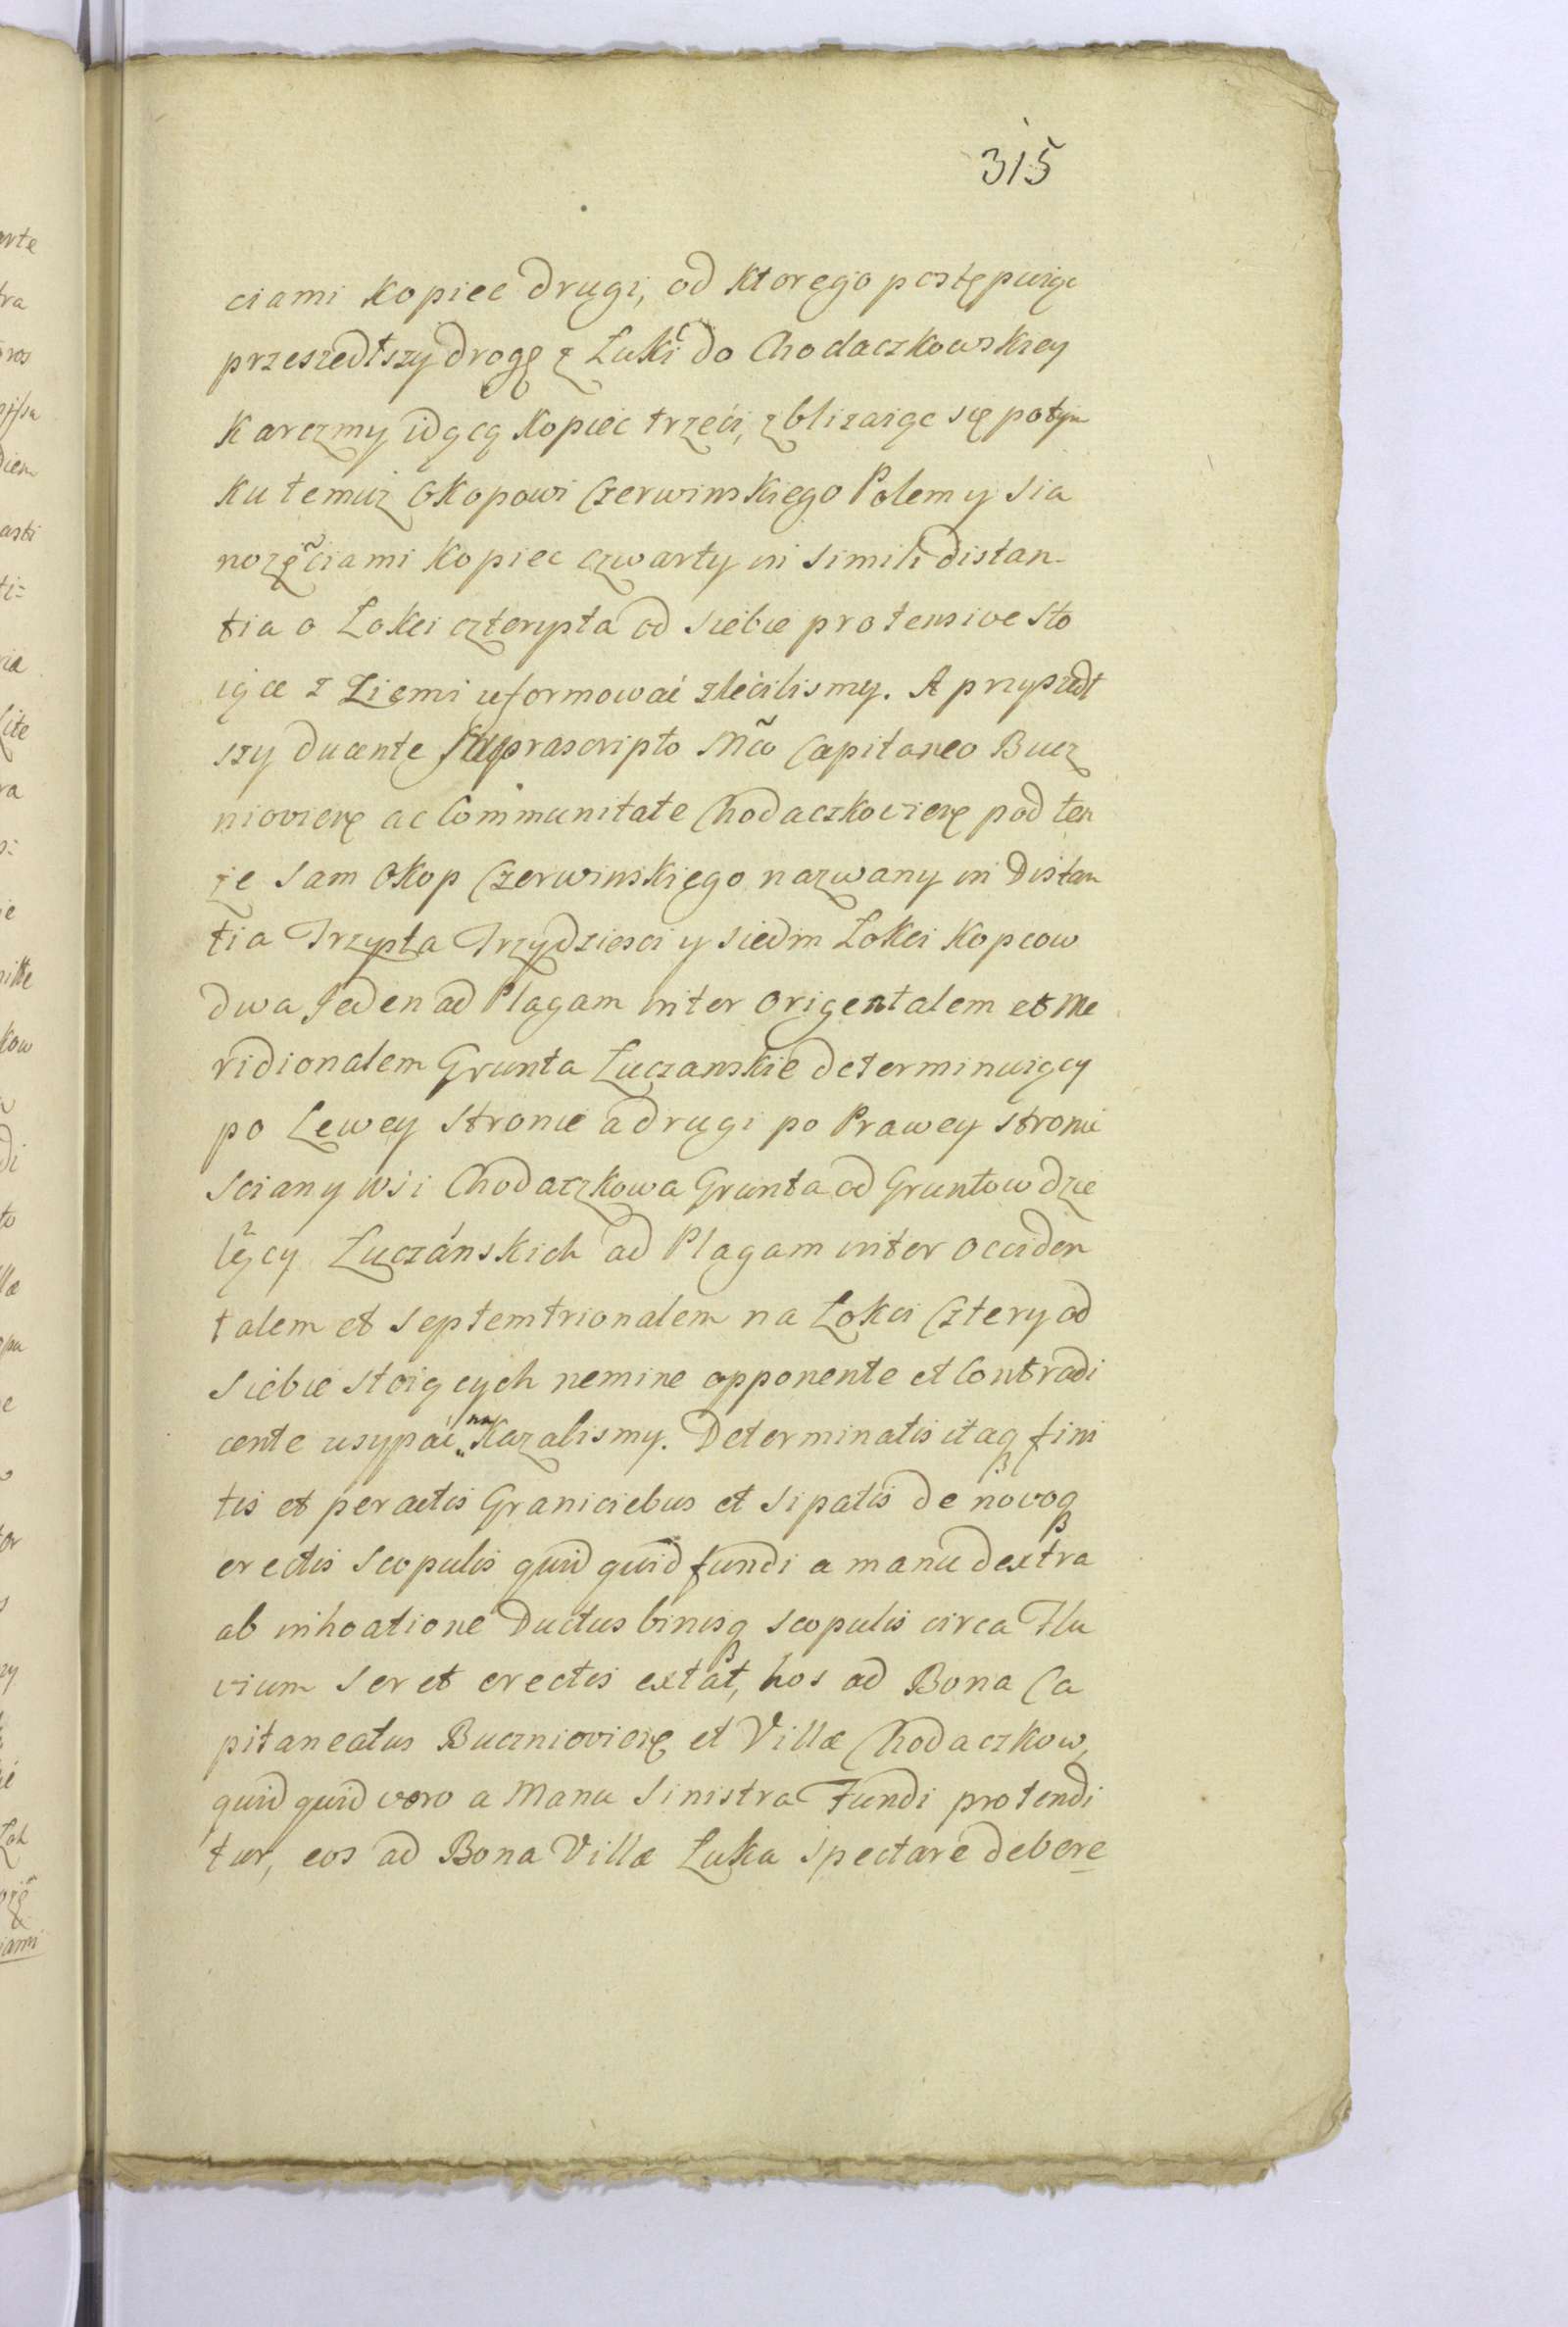 315
ciami Kopiec drugi, od Ktorego postępuiąc
przeszedłszy drogę z Łuki do Chodaczkowskiey
Karczmy idącą Kopiec trzeci, zbliżaiąc się potym
Ku temuż Okopowi Czerwinskiego Polem y sia
nozęciami Kopiec czwarty in simili distan-
tia o Łokci czterysta od siebie protensive sto
iące z Ziemi uformować zlecilismy. A przyszedł
szy ducente suprascripto Mco Capitaneo Bucz
niovien ac Communitate Chodaczkovien pod ten
że sam Okop Czerwinskiego nazwany in Distan
tia Trzysta Trzydziesci y siedm Łokci Kopcow
dwa Jeden ad Plagam inter Origentalem et Me
ridionalem Grunta Łuczanskie determinuiący
po Lewey Stronie a drugi po Prawey stronie
sciany wsi Chodaczkowa Grunta od Gruntow dzie
lący Łuczánskich ad Plagam inter Occiden
talem et Septemtrionalem na Łokci Cztery od
siebie stoiących nemine opponente et Contradi
cente usypać naKazalismy. Determinatis itaq fini
tis et peractis Graniciebus et sipatis de novoq
erectis scopulis quid quid fundi a manu dextra
ab inhoatione Ductus binisq scopulis circa Flu
vium Seret erectis extat, hos ad Bona Ca
pitaneatus Buczniovien et Villæ Chodaczkow,
quid quid vero a Manu Sinistra Fundi protendi
tur, eos ad Bona Villæ Łuka spectare debere